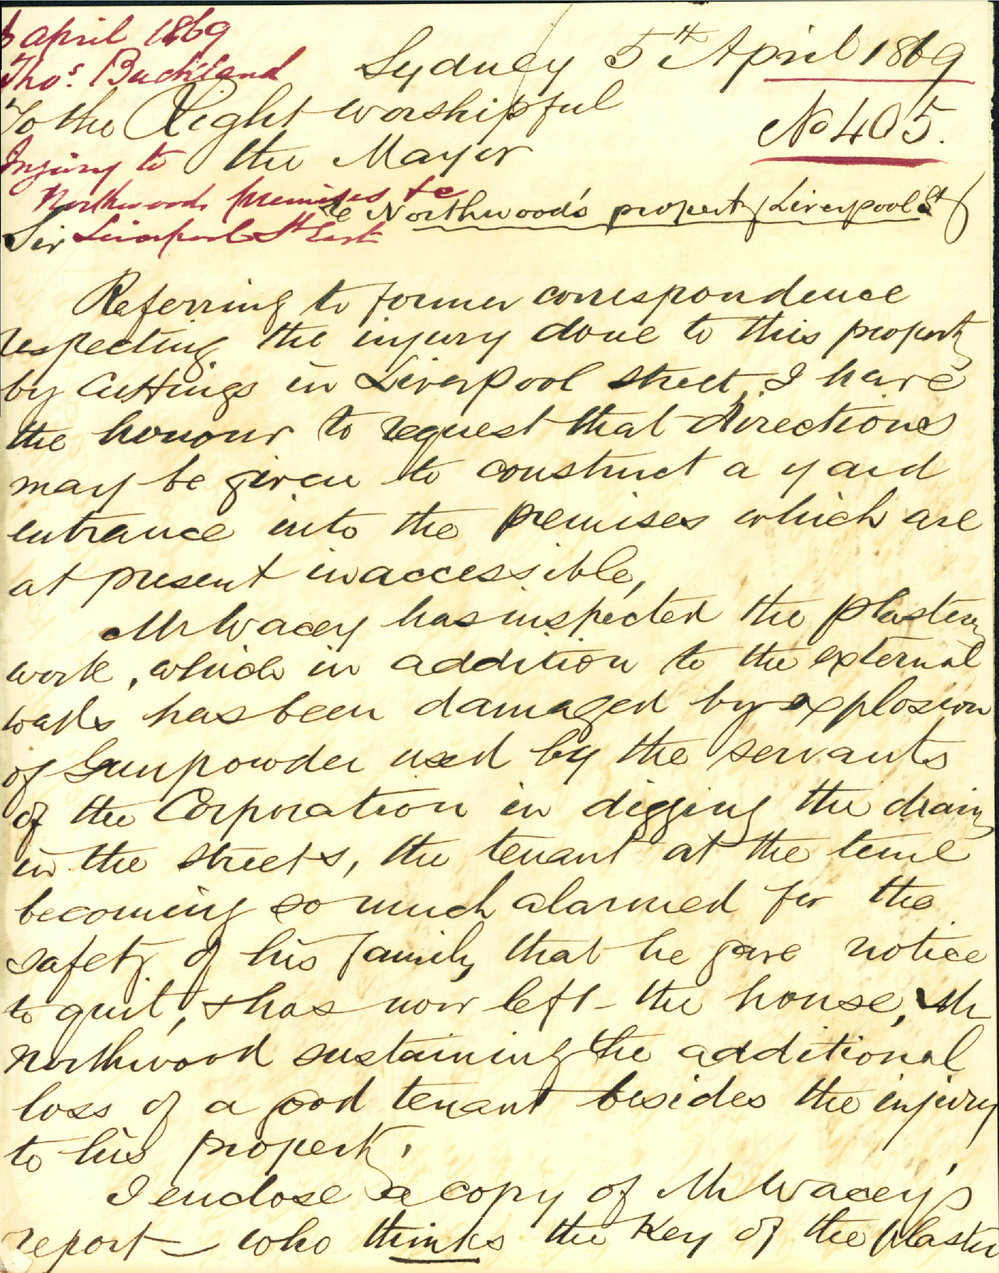 6 April 1869
Thos. Buckland
Injury to
Northwoods premises &c
Liverpool St East
Sydney 5th April 1869
No 405.
To the Right Worshipful
the Mayor
re Northwood's property Liverpool St
Sir
Referring to former correspondence
respecting the injury done to this property
by Cuttings in Liverpool street, I have
the honour to request that directions
may be given to construct a yard
entrance into the premises which are
at present inaccessible,
Mr Wacey has inspected the plastering
work, which in addition to the external
walls has been damaged by explosion
of Gunpowder used by the servants
of the Corporation in digging the drains
in the streets, the tenant at the time
becoming so much alarmed for the
safety of his family that he gave notice
to quit, & has now left the house, Mr
Northwood sustaining the additional
loss of a good tenant besides the injury
to his property.
I enclose a copy of Mr Wacey's
report – who thinks the Key of the plaster